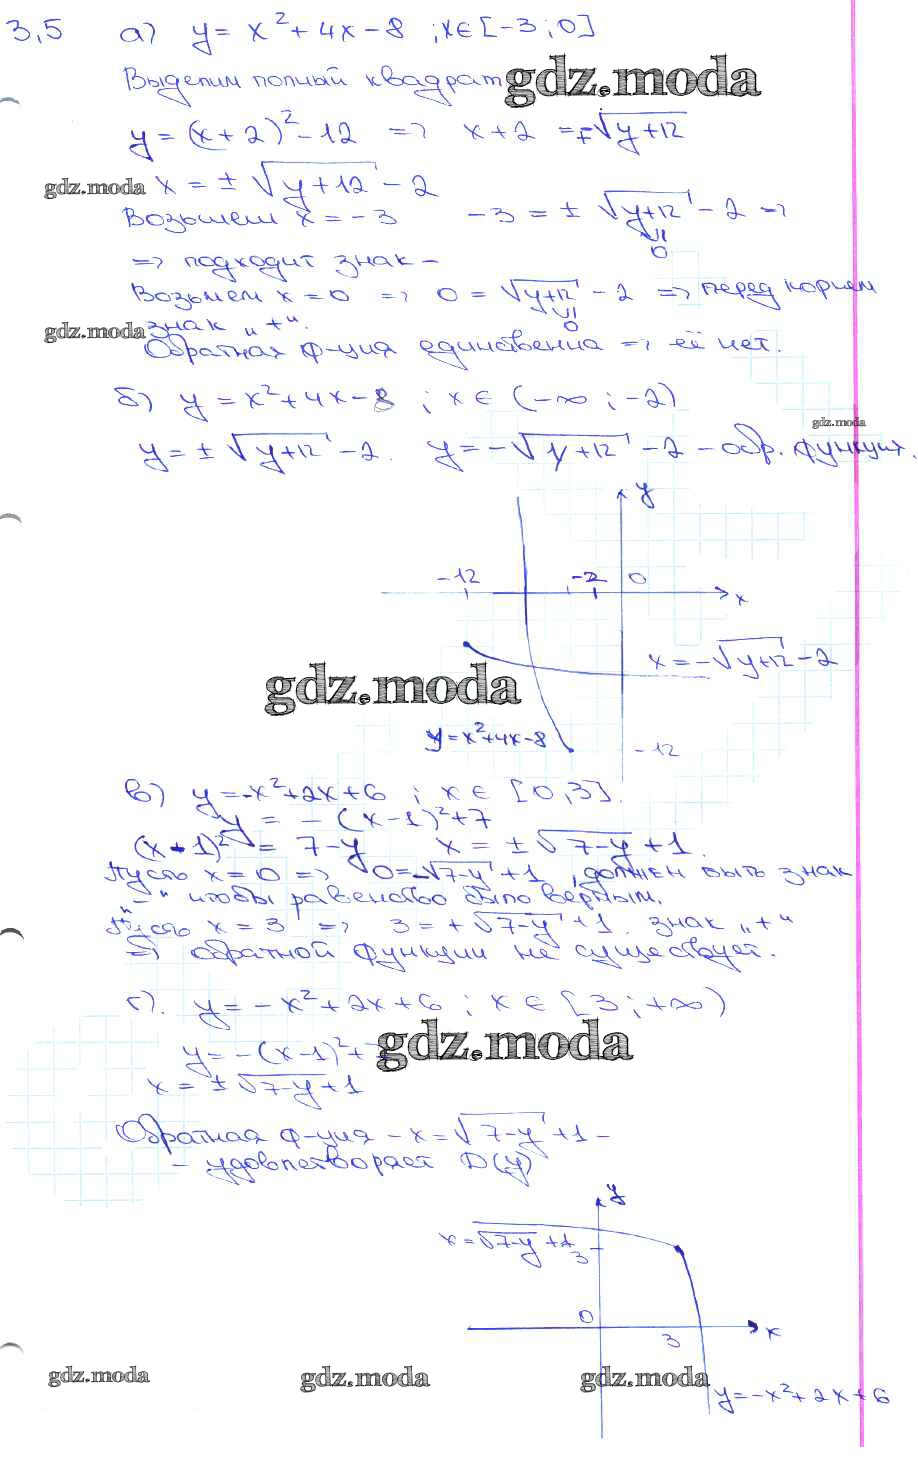 3,5 а) y = x² + 4x - 8 ; x ∈ [-3 ; 0]
Выделим полный квадрат
gdz.moda
y = (x+2)² - 12 => x + 2 = ∓√(y+12)
gdz.moda x = ± √(y+12) - 2
Возьмем x = -3 -3 = ± √(y+12) - 2 =>
VI
0
=> подходит знак -
Возьмем x = 0 => 0 = √(y+12) - 2 => перед корнем
VI
0
gdz.moda знак „+“.
Обратная ф-ция единственна => её нет.
б) y = x² + 4x - 8 ; x ∈ (-∞ ; -2)
gdz.moda
y = ± √(y+12) - 2. y = -√(y+12) - 2 - обр. функция.
y
-12 -2 0
x
x = -√(y+12) - 2
gdz.moda
y = x² + 4x - 8
-12
в) y = -x² + 2x + 6 ; x ∈ [0, 3].
y = -(x-1)² + 7
(x-1)² = 7 - y x = ± √(7-y) + 1.
Пусть x = 0 => 0 = -√(7-y) + 1, должен быть знак
„-“ чтобы равенство было верным.
Пусть x = 3 => 3 = + √(7-y) + 1. знак „+“
=> обратной функции не существует.
г). y = -x² + 2x + 6 ; x ∈ [3 ; +∞)
y = -(x-1)² + 7
gdz.moda
x = ± √(7-y) + 1
Обратная ф-ция - x = √(7-y) + 1 -
- удовлетворяет D(y)
y
x = √(7-y) + 1
3
0
3
x
gdz.moda gdz.moda gdz.moda
y = -x² + 2x + 6